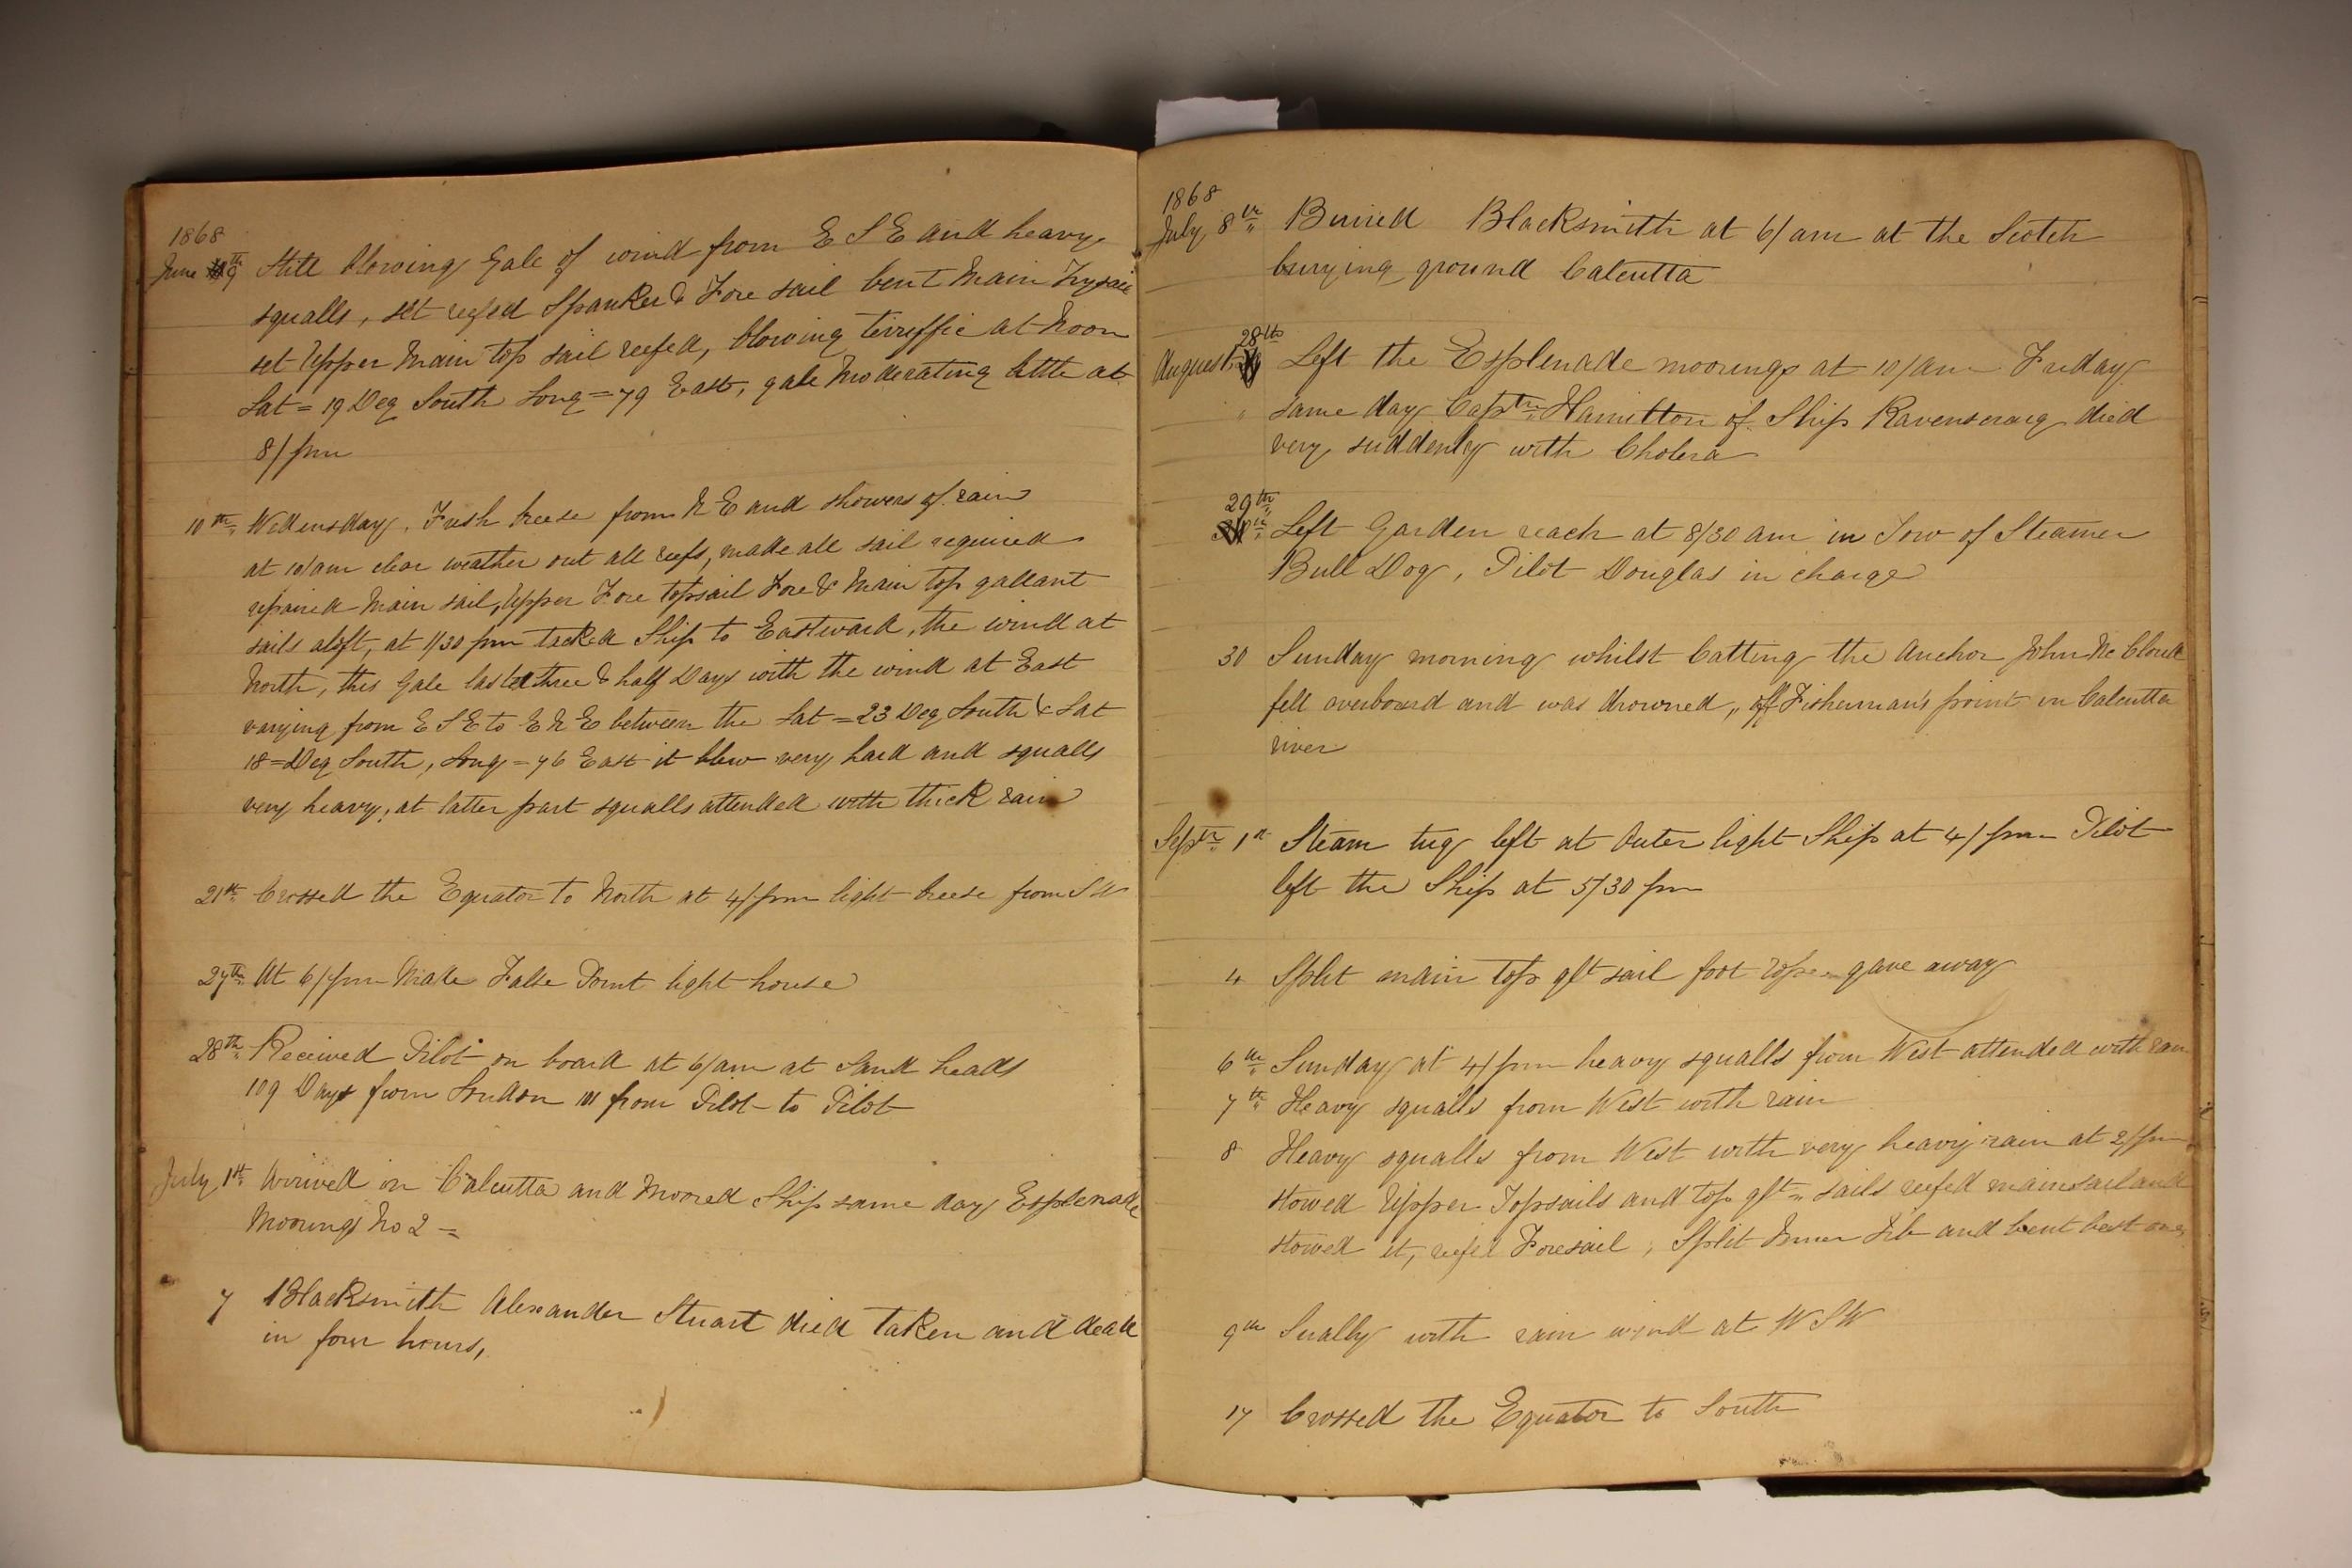 1868
June 9th Still blowing Gale of wind from E S E and heavy
squalls, set reefed Spanker & Fore sail bent Main Trysail
set Upper Main top sail reefed, blowing terriffic at Noon
Lat = 19 Deg South Long = 79 East, gale Moderating little at
8/pm
10th Wedensday, Fresh breese from N E and showers of rain
at 10/am clear weather out all reefs, made all sail required
repaired Main sail, Upper Fore topsail Fore & Main top gallant
sails aloft, at 1/30 pm tacked Ship to Eastward, the wind at
North, this Gale lasted three & half Days with the wind at East
varying from E S E to E N E between the Lat = 23 Deg South & Lat
18 = Deg South, Long = 76 East it blew very hard and squalls
very heavy, at latter part squalls attended with thick rain
21st Crossed the Equator to North at 4/pm light breese from S W
27th At 6/pm Made False Point light house
28th Received Pilot on board at 6/am at Sand heads
109 Days from London 101 from Pilot to Pilot
July 1st Arrived in Calcutta and Moored Ship same day Esplenade
Moorings No 2 =
7 Blacksmith Alexander Stuart died taken and dead
in four hours,
1868
July 8th Buried Blacksmith at 6/am at the Scotch
burying ground Calcutta
August 28th Left the Esplenade moorings at 10/am Friday
" same day Captn Hamilton of Ship Ravenscraig died
very suddenly with Cholera
29th Left Garden reach at 8/30 am in Tow of Steamer
Bull Dog, Pilot Douglas in charge
30 Sunday morning whilst Catting the Anchor John Mc Cloud
fell overboard and was drowned, off Fisherman's point in Calcutta
river
Septr 1st Steam tug left at Outer light Ship at 4/pm Pilot
left the Ship at 5/30 pm
4 Split main top glt sail foot rope gave away
6th Sunday at 4/pm heavy squalls from West attended with rain
7th Heavy squalls from West with rain
8 Heavy squalls from West with very heavy rain at 2/pm
stowed Upper Topsails and top glt sails reefed mainsail and
stowed it, reefed Foresail, Split Inner Jib and bent best one
9th Sually with rain wind at W S W
17 Crossed the Equator to South